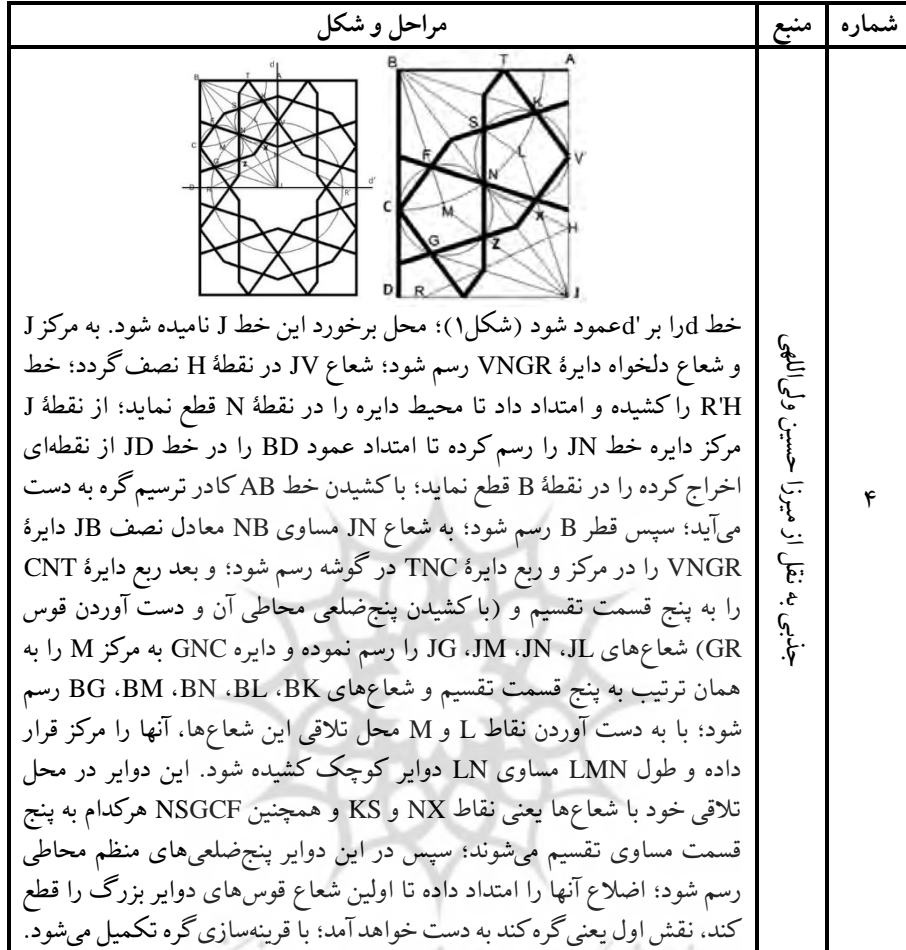 شماره	منبع	مراحل و شکل
۴
جذبی به نقل از میرزا حسین ولی‌اللهی
d
B T A
K
S
F
L
V
N
C
M
X
H
G
Z
D R J
R'
d'
B T A
K
S
L
F
V
N
C
M
X
H
G
Z
D R J
خط d را بر 'd عمود شود (شکل۱)؛ محل برخورد این خط J نامیده شود. به مرکز J
و شعاع دلخواه دایرهٔ VNGR رسم شود؛ شعاع JV در نقطهٔ H نصف گردد؛ خط
R'H را کشیده و امتداد داد تا محیط دایره را در نقطهٔ N قطع نماید؛ از نقطهٔ J
مرکز دایره خط JN را رسم کرده تا امتداد عمود BD را در خط JD از نقطه‌ای
اخراج کرده را در نقطهٔ B قطع نماید؛ با کشیدن خط AB کادر ترسیم گره به دست
می‌آید؛ سپس قطر B رسم شود؛ به شعاع JN مساوی NB معادل نصف JB دایرهٔ
VNGR را در مرکز و ربع دایرهٔ TNC در گوشه رسم شود؛ و بعد ربع دایرهٔ CNT
را به پنج قسمت تقسیم و (با کشیدن پنج‌ضلعی محاطی آن و دست آوردن قوس
GR) شعاع‌های JG ،JM ،JN ،JL را رسم نموده و دایره GNC به مرکز M را به
همان ترتیب به پنج قسمت تقسیم و شعاع‌های BG ،BM ،BN ،BL ،BK رسم
شود؛ با به دست آوردن نقاط L و M محل تلاقی این شعاع‌ها، آنها را مرکز قرار
داده و طول LMN مساوی LN دوایر کوچک کشیده شود. این دوایر در محل
تلاقی خود با شعاع‌ها یعنی نقاط NX و KS و همچنین NSGCF هرکدام به پنج
قسمت مساوی تقسیم می‌شوند؛ سپس در این دوایر پنج‌ضلعی‌های منظم محاطی
رسم شود؛ اضلاع آنها را امتداد داده تا اولین شعاع قوس‌های دوایر بزرگ را قطع
کند، نقش اول یعنی گره کند به دست خواهد آمد؛ با قرینه‌سازی گره تکمیل می‌شود.